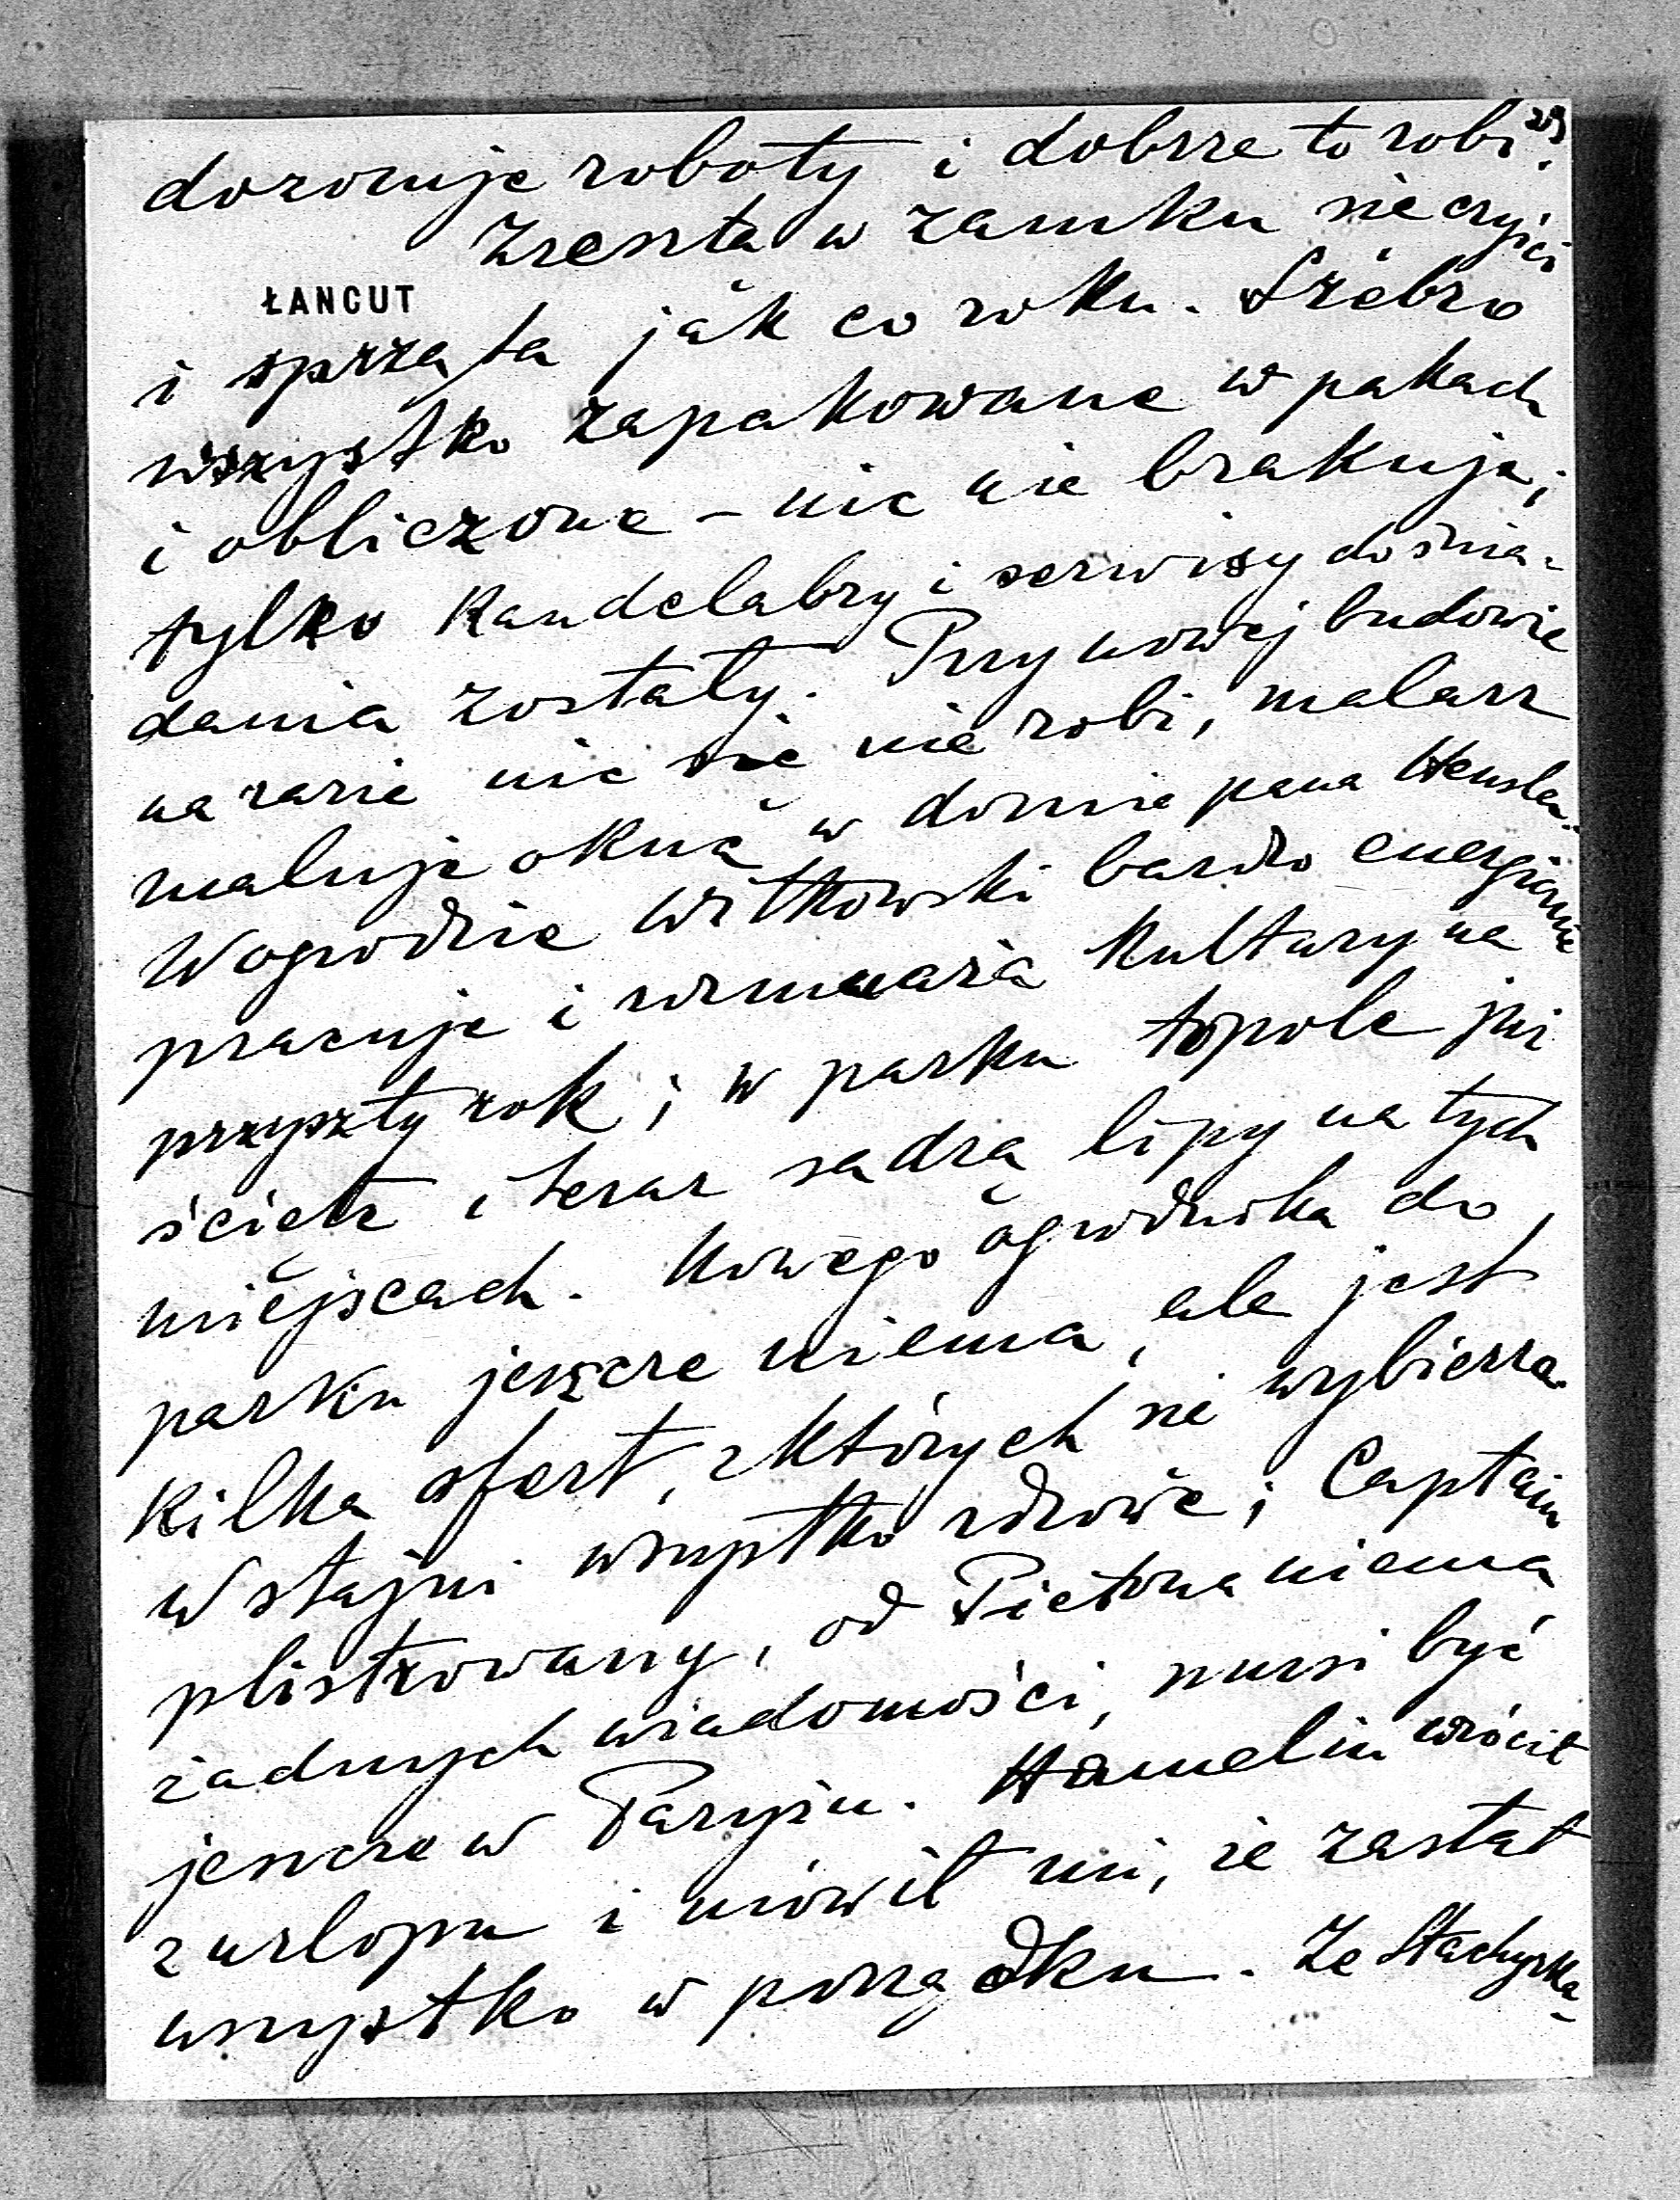 29
dozoruje roboty i dobrze to robi.
Zresztą w zamku się czyści
ŁANCUT
i sprząta jak co roku. Srébro
wszystko zapakowane w pakach
i obliczone – nic nie brakuje,
tylko kandelabry i serwisy do śnia-
dania zostały. Przy nowej budowie
na razie nic się nie robi, malarz
maluje okna w domie pana
W ogrodzie Witkowski bardzo energicznie
pracuje i wzmaża kultury na
przyszły rok; w parku topole już
ścięte i teraz sadzą lipy na tych
miejscach. Nowego ogrodnika do
parku jeszcze niema, ale jest
kilka ofert, z których się wybierze.
W stajni wszystko zdrowe; Captain
plistrowany, od Pietona niema
żadnych wiadomości, musi być
jeszcze w Paryżu. Hamelin wrócił
z urlopu i mówił mi, że zastał
wszystko w porządku. Ze Stachyrka-